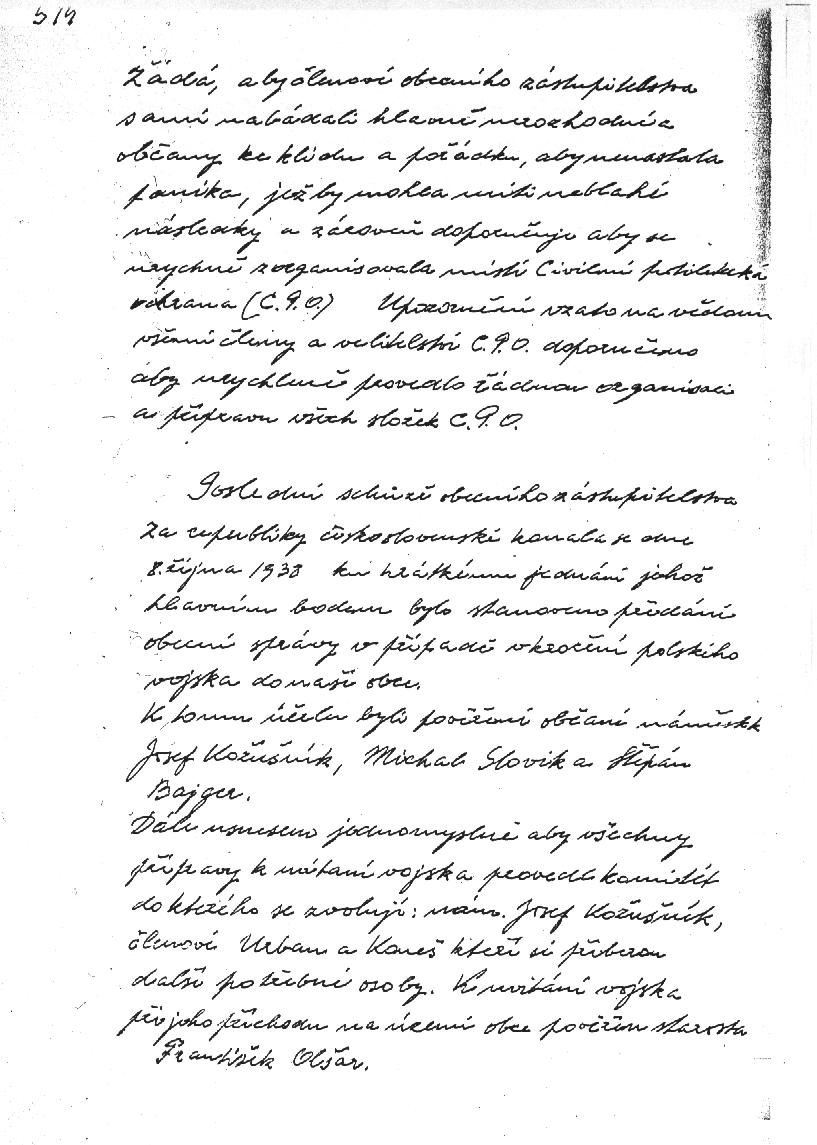 514
Žádá, aby členové obecního zastupitelstva
sami nabádali hlavně nerozhodné
občany ke klidu a pořádku, aby nenastala
panika, jež by mohla míti neblahé
následky a zároveň doporučuje aby se
urychleně zorganisovala místí Civilní protiletecká
ochrana (C.P.O.) Upozornění vzato na vědomí
všemi členy a velitelství C.P.O. doporučeno
aby urychleně provedlo řádnou organisaci
a přípravu všech složek C.P.O.
Poslední schůze obecního zastupitelstva
za republiky československé konala se dne
8. října 1938 ku krátkému jednání jehož
hlavním bodem bylo stanoveno předání
obecní správy v případě vkročení polského
vojska do naší obce.
K tomu účelu byli pověřeni občané náměstek
Josef Kožušník, Michal Slovik a Štěpán
Bajger.
Dále usneseno jednomyslně aby všechny
přípravy k uvítání vojska provedl komitét
do kterého se zvolují: nám. Josef Kožušník,
členové Urban a Kareš kteří si přiberou
další potřebné osoby. K uvítání vojska
při jeho příchodu na území obce pověřen starosta
František Olšar.